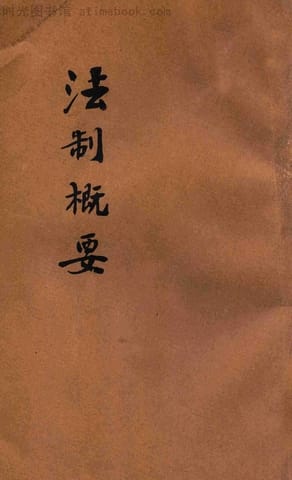 时光图书馆 - atimebook.com
法制概要